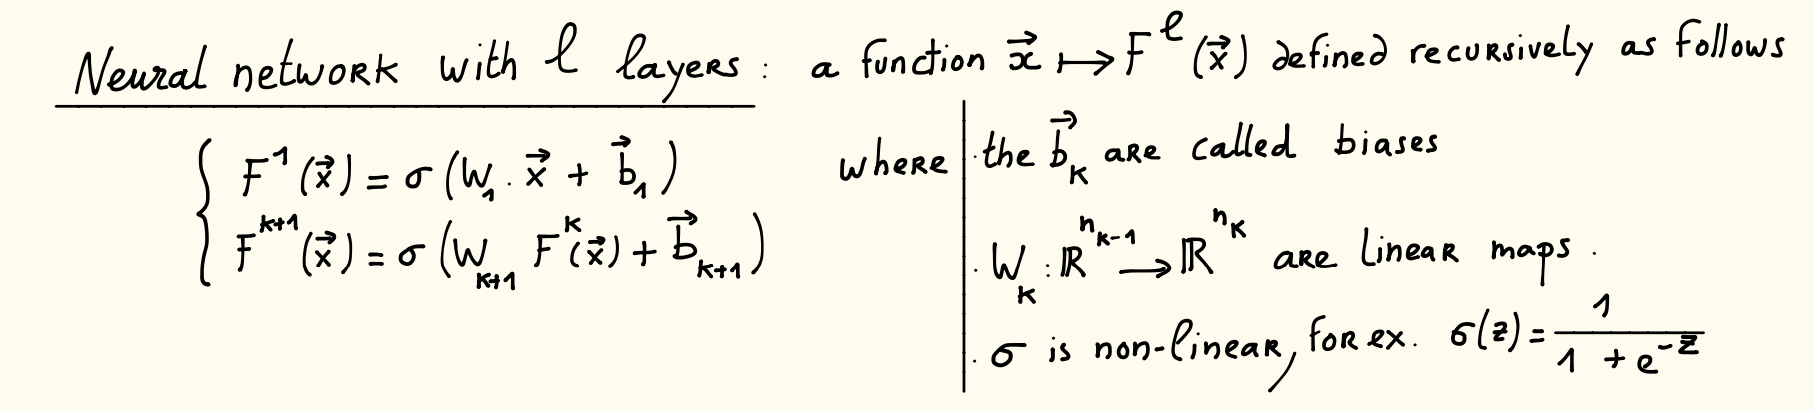 Neural network with ℓ layers : a function x⃗ ↦ F^ℓ(x⃗) defined recursively as follows
{ F^1(x⃗) = σ(W_1 . x⃗ + b⃗_1)
F^{k+1}(x⃗) = σ(W_{k+1} F^k(x⃗) + b⃗_{k+1})
where | . the b⃗_k are called biases
. W_k : ℝ^{n_{k-1}} ⟶ ℝ^{n_k} are linear maps .
. σ is non-linear, for ex. σ(z) = 1 / (1 + e^{-z})